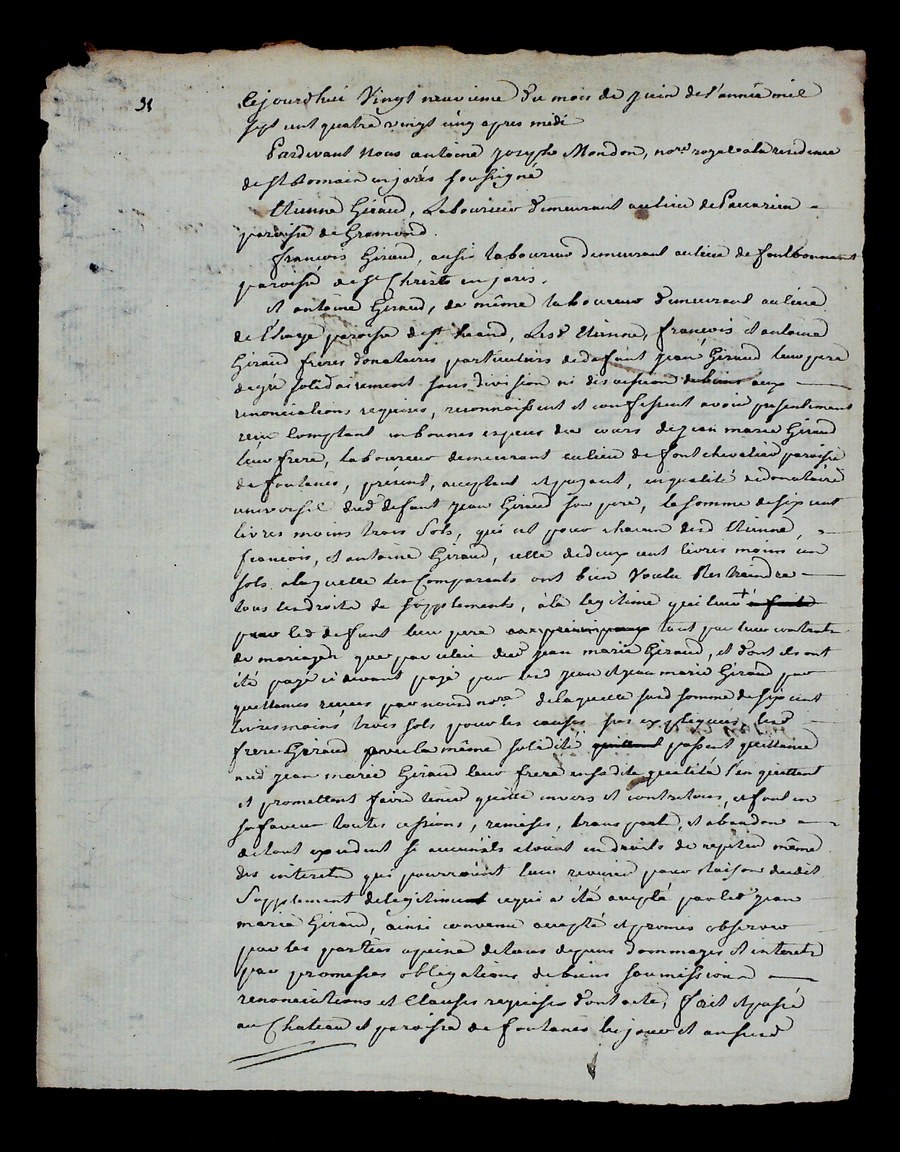 Cejourdhui vingt neuvieme du mois de juin de l'année mil
sept cent quatre vingt cinq apres midi
Pardevant nous antoine joseph Mondon, nore royal à la residence
de st Romain en jarés soussigné
Etienne Giraud, Laboureur demeurant au lieu de
paroisse de Gramond.
françois Giraud, aussi laboureur demeurant au lieu de fontbonnant
paroisse de st Christo en jaris.
et antoine Giraud, de même laboureur demeurant au lieu
de paroisse de st heand, Lesd Etienne, françois et antoine
Giraud freres donataires particuliers de defunt jean Giraud leur pere
de gre solidairement sans division ni discussion de biens aux
renonciations requises, reconnoissent et confessent avoir presentement
reçu comptant en bonnes especes du cours de jean marie Giraud
leur frere, laboureur demeurant au lieu de fontchevalier paroisse
de fontanes, présent, acceptant et payant, en qualité de donataire
universel dud defunt jean Giraud son pere, la somme de six cent
livres moins trois sols, qui est pour chacun desd Etienne,
francois, et antoine Giraud, celle de deux cent livres moins un
sols a laquelle les Comparants ont bien voulu Restraindre
tous les droits de supplements, à la legitime qui leur + a faite
par led defunt leur pere tant par leur contrats
de mariages que par celui dud jean marie Giraud, et dont ils ont
été payé ci devant payé par led jean et jean marie Giraud par
quittances recues par nousd nore de laquelle susd somme de six cent
livres moins trois sols pour les causes sus expliquées lesd
frere Geraud avec la même solidité quittent passent quittance
aud jean marie Giraud leur frere en sadite qualité l'en quittent
et promettent faire tenir quitte envers et contre tous, et font en
sa faveur toutes cessions, remises, transports, et abandon
de tout excedent si aucuns ils etoient en droits de repeter même
des interets qui pourroient leur revenir pour Raison dudit
Supplement de legitime ce qui a été accepté par led jean
marie Giraud, ainsi convenu accepté et promis observer
par les parties a peine de tous depens dommages et interets
par promesses obligations de biens soumissions
renonciations et Clauses requises dont acte, fait et passé
au Chateau et paroisse de fontanès les jour et an susd